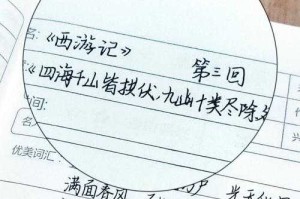 名:《西游记》 第三回
《四海千山皆拱伏·九幽十类尽除名
间:
名人
优美词汇:
满面春风